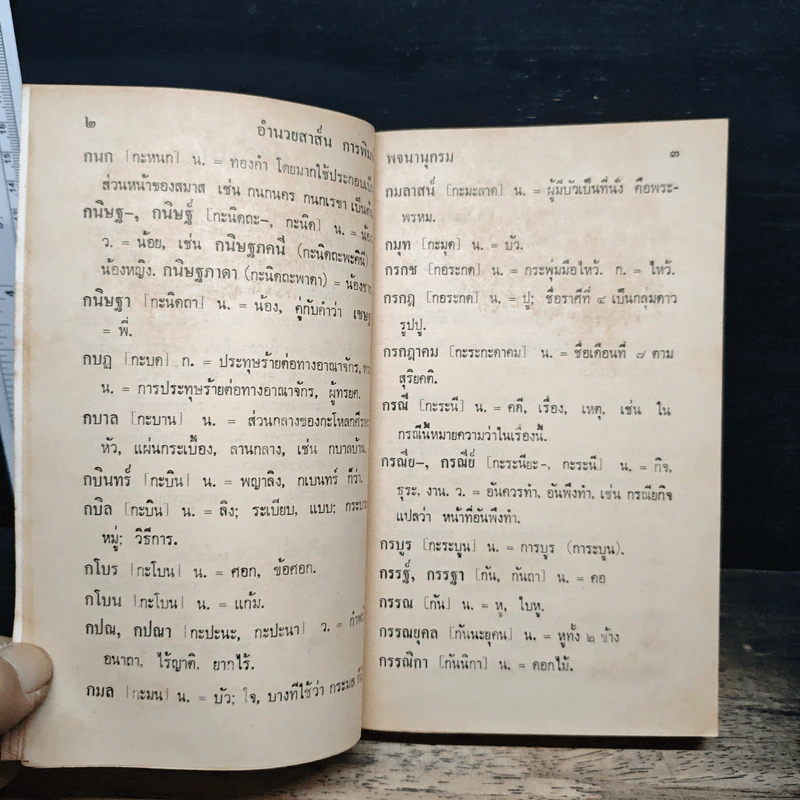 ๒
อำนวยสาส์น การพิม
กนก [กะหนก] น. = ทองคำ โดยมากใช้ประกอบเป็น
ส่วนหน้าของสมาส เช่น กนกนคร กนกเรขา เป็นต้น
กนิษฐ-, กนิษฐ์ [กะนิดถะ-, กะนิด] น. = น้อง
ว. = น้อย, เช่น กนิษฐภคนี (กะนิดถะพะคินี)
น้องหญิง. กนิษฐภาดา (กะนิดถะพาดา) = น้องชาย
กนิษฐา [กะนิดถา] น. = น้อง, คู่กับคำว่า เชษฐ
= พี่.
กบฏ [กะบด] ก. = ประทุษร้ายต่อทางอาณาจักร,
น. = การประทุษร้ายต่อทางอาณาจักร, ผู้ทรยศ.
กบาล [กะบาน] น. = ส่วนกลางของกะโหลกศีรษะ
หัว, แผ่นกระเบื้อง, ลานกลาง, เช่น กบาลบ้าน.
กบินทร์ [กะบิน] น. = พญาลิง, กเบนทร์ ก็ว่า.
กบิล [กะบิน] น. = ลิง; ระเบียบ, แบบ; กระบวน
หมู่; วิธีการ.
กโบร [กะโบน] น. = ศอก, ข้อศอก.
กโบน [กะโบน] น. = แก้ม.
กปณ, กปณา [กะปะนะ, กะปะนา] ว. = กำพร้
อนาถา, ไร้ญาติ, ยากไร้.
กมล [กะมน] น. = บัว; ใจ, บางทีใช้ว่า กระมล ก็
พจนานุกรม
๓
กมลาสน์ [กะมะลาด] น. = ผู้มีบัวเป็นที่นั่ง คือพระ-
พรหม.
กมุท [กะมุด] น. = บัว.
กรกช [กอระกด] น. = กระพุ่มมือไหว้. ก. = ไหว้.
กรกฎ [กอระกด] น. = ปู; ชื่อราศีที่ ๔ เป็นกลุ่มดาว
รูปปู.
กรกฎาคม [กะระกะดาคม] น. = ชื่อเดือนที่ ๗ ตาม
สุริยคติ.
กรณี [กะระนี] น. = คดี, เรื่อง, เหตุ, เช่น ใน
กรณีนี้หมายความว่าในเรื่องนี้.
กรณีย-, กรณีย์ [กะระนียะ-, กะระนี] น. = กิจ,
ธุระ, งาน. ว. = อันควรทำ, อันพึงทำ, เช่น กรณียกิจ
แปลว่า หน้าที่อันพึงทำ.
กรบูร [กะระบูน] น. = การบูร (การะบูน).
กรรฐ์, กรรฐา [กัน, กันถา] น. = คอ
กรรณ [กัน] น. = หู, ใบหู.
กรรณยุคล [กันนะยุคน] น. = หูทั้ง ๒ ข้าง
กรรณิกา [กันนิกา] น. = ดอกไม้.